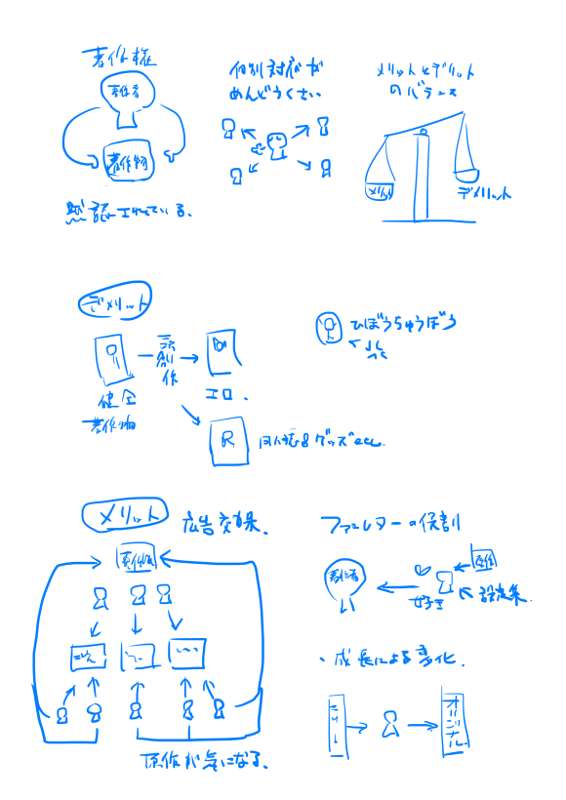 著作権
著作者
著作物
黙認されている。
個別対応が
めんどうくさい
メリットとデメリット
のバランス
メリット
デメリット
デメリット
健全
著作物
二次創作
エロ.
同人誌&グッズetc.
ひぼうちゅうぼう
メリット
広告効果.
著作物
原作が気になる.
ファンレターの役割
著作者
好き
原作
設定集.
・成長による変化.
オリジナル